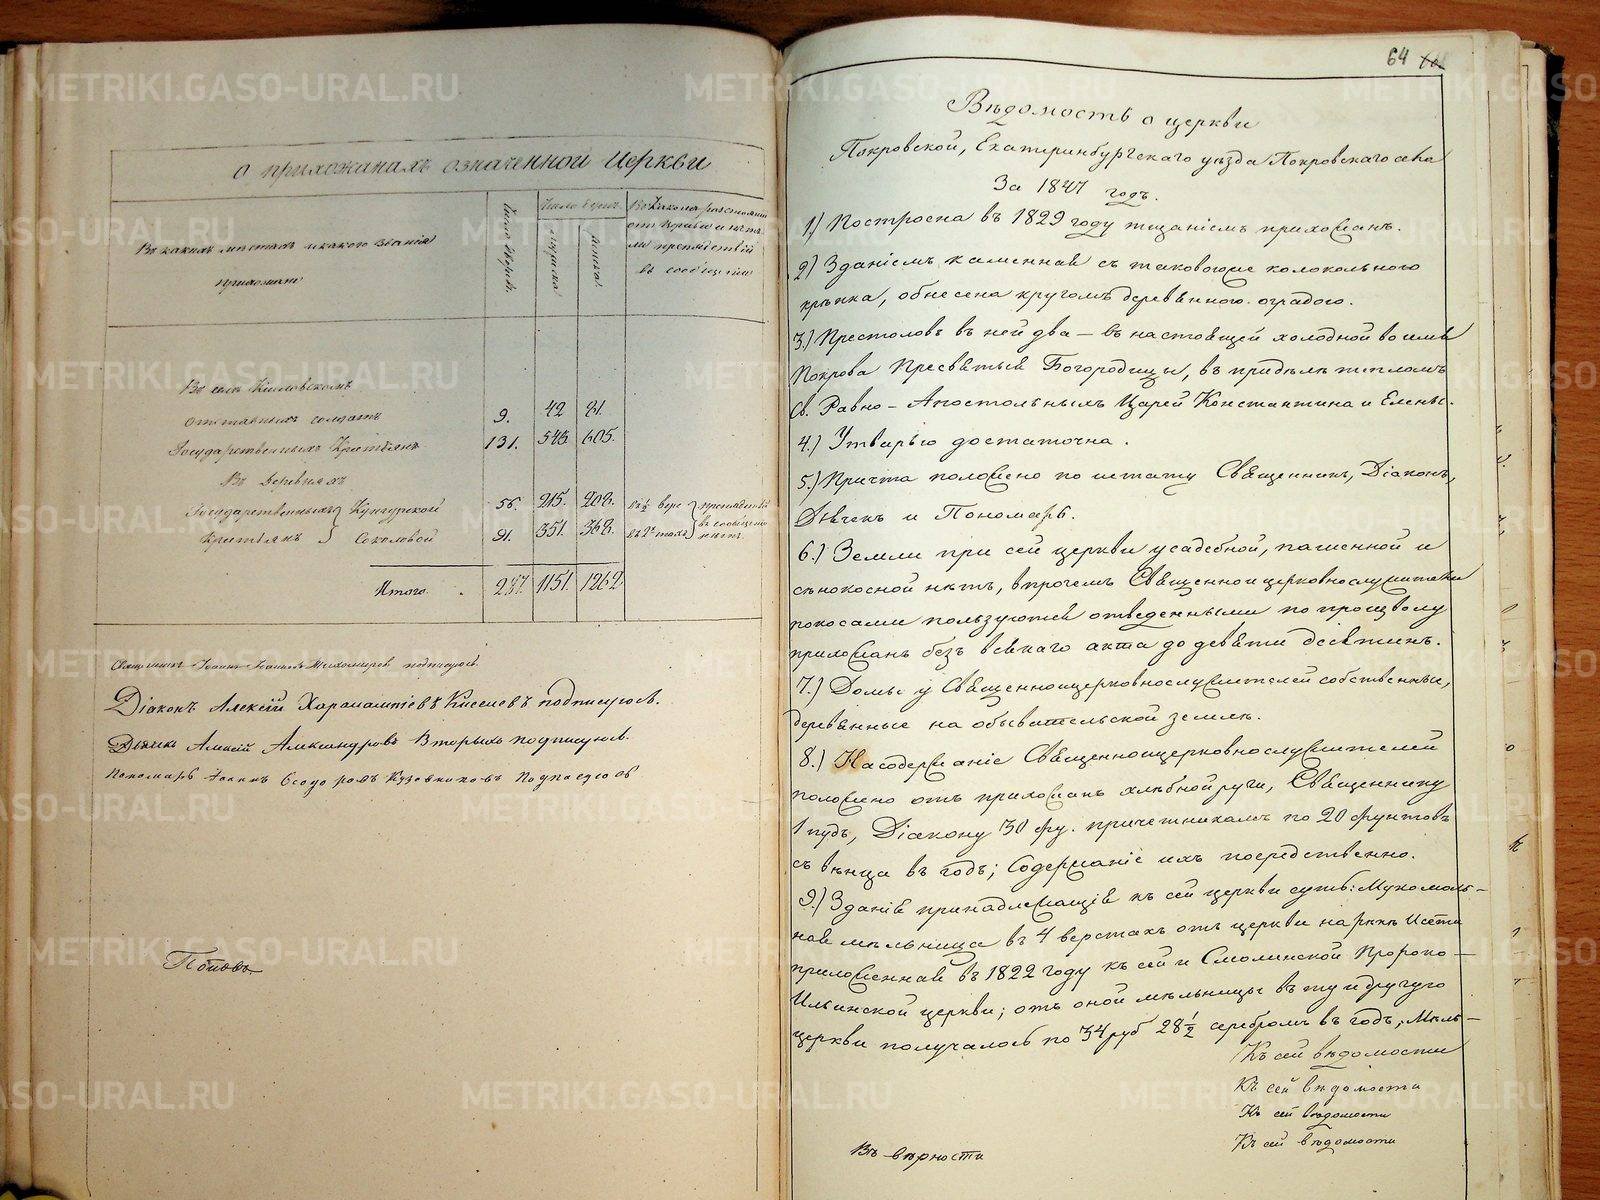 о прихожанахъ означенной Церкви
Въ какихъ мѣстахъ и какого званія
прихожане
Число дворовъ.
Число душъ.
мужска
женска.
Въ коликомъ разстояніи
отъ Церкви и нѣтъ
ли препятствій
въ сообщеніи
Въ селѣ
отставныхъ солдатъ 9. 42 81.
Государственныхъ Крестьянъ 131. 543. 605.
Въ деревняхъ
Государственныхъ Кунгурской 56. 215. 208.
Крестьянъ Соколовой 91. 351. 368.
препятствій
въ сообщеніи
нѣтъ.
Итого. 287. 1151. 1262
Священникъ Іоаннъ Іоанновъ Тихомировъ подписуюсь.
Діаконъ Алексій Харалампіевъ Киселевъ подписуюсь.
Дьячекъ Алексій Александровъ Вторыхъ подписуюсь.
Пономарь Іоаннъ Ѳеодоровъ Кузовниковъ подписуюсь
Поповъ
64
Вѣдомость о церкви
Покровской, Екатеринбургскаго уѣзда Покровскаго села
За 1847 годъ.
1.) Построена въ 1829 году тщаніемъ прихожанъ.
2) Зданіемъ каменная съ таковоюже колокольнею
крѣпка, обнесена кругомъ деревянною оградою.
3.) Престоловъ въ ней два — въ настоящей холодной во имя
Покрова Пресвятыя Богородицы, въ придѣлѣ тепломъ
Св. Равно-Апостольныхъ Царей Константина и Елены.
4.) Утварью достаточна.
5.) Причта положено по штату Священникъ, Діаконъ,
Дьячекъ и Пономарь.
6.) Земли при сей церкви усадебной, пашенной и
сѣнокосной нѣтъ, впрочемъ Священноицерковнослужители
покосами пользуются отведенными по произволу
прихожанъ безъ всякаго акта до девяти десятинъ.
7.) Домы у Священноицерковнослужителей собственные,
деревянные на обывательской землѣ.
8.) На содержаніе Священноицерковнослужителей
положено отъ прихожанъ хлѣбной руги, Священнику
1 пудъ, Діакону 30 фу. причетникамъ по 20 фунтовъ
съ вѣнца въ годъ; Содержаніе ихъ посредственно.
9.) Зданія принадлежащія къ сей церкви суть: Мукомоль-
ная мѣльница въ 4 верстахъ отъ церкви на рѣкѣ Исети
приложенная въ 1822 году къ сей и Смолинской Пророко-
Ильинской церкви; отъ оной мѣльницы въ ту и другую
церкви получалось по 34 руб 28 ½ серебромъ въ годъ; Мѣль-
Къ сей вѣдомости
Къ сей вѣдомости
Къ сей вѣдомости
Къ сей вѣдомости
Въ вѣрности
METRIKI.GASO-URAL.RU